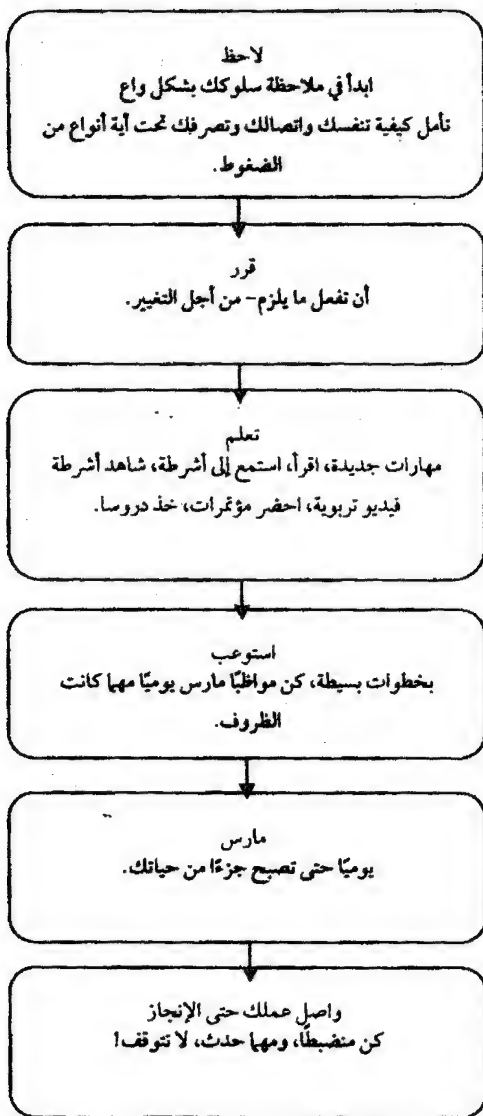 لاحظ
ابدأ في ملاحظة سلوكك بشكل واع
تأمل كيفية تنفسك واتصالك وتصرفك تحت أية أنواع من
الضغوط.
قرر
أن تفعل ما يلزم- من أجل التغيير.
تعلم
مهارات جديدة، اقرأ، استمع إلى أشرطة، شاهد أشرطة
فيديو تربوية، احضر مؤتمرات، خذ دروسا.
استوعب
بخطوات بسيطة، كن مواظبًا مارس يوميًا مهما كانت
الظروف.
مارس
يوميًا حتى تصبح جزءًا من حياتك.
واصل عملك حتى الإنجاز
كن منضبطًا، ومهما حدث، لا تتوقف!